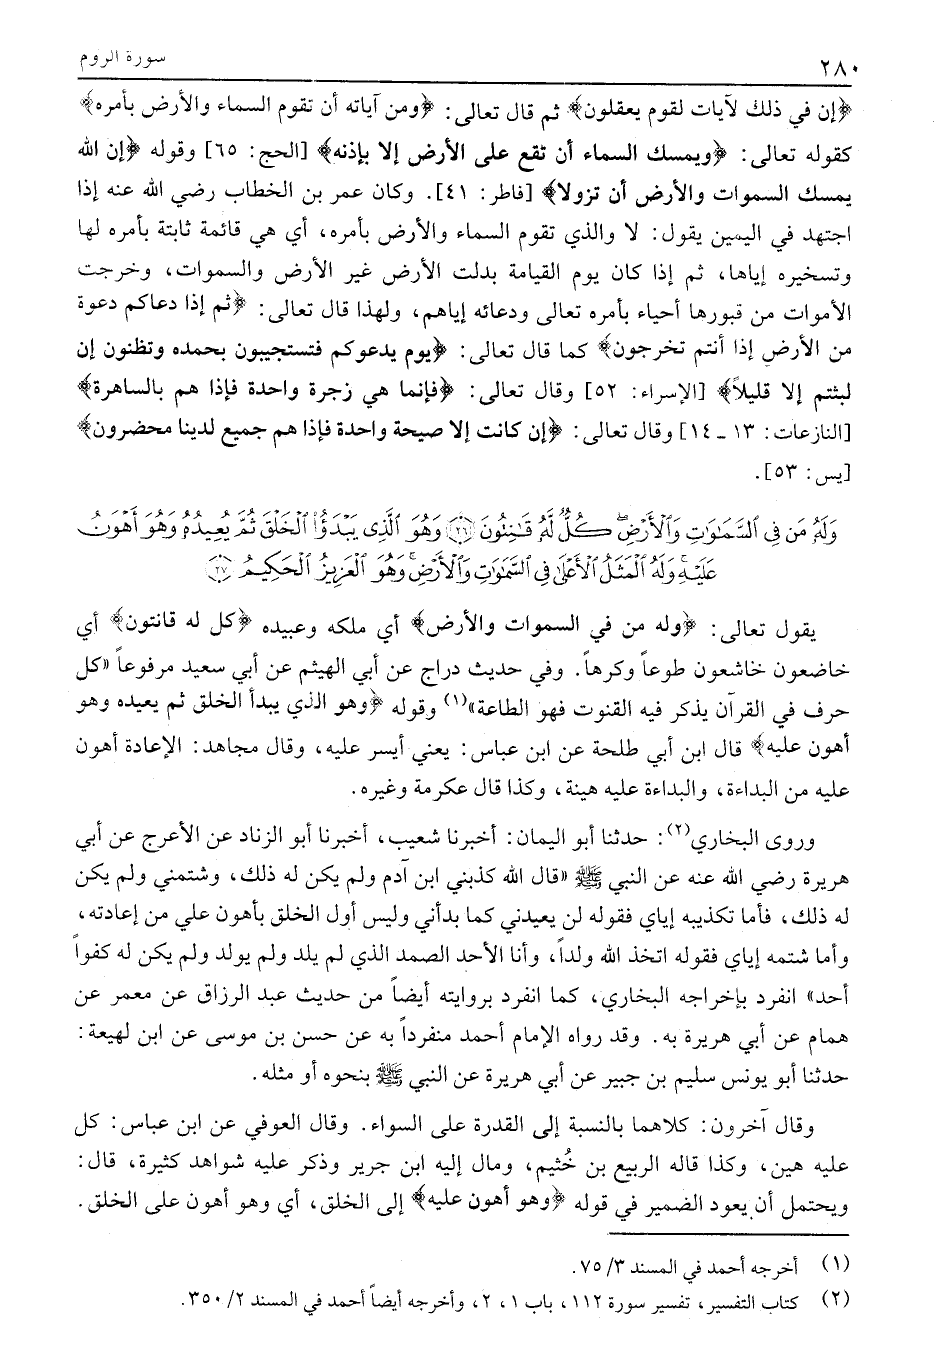 ٢٨٠
سورة الروم
﴿إن في ذلك لآيات لقوم يعقلون﴾ ثم قال تعالى: ﴿ومن آياته أن تقوم السماء والأرض بأمره﴾
كقوله تعالى: ﴿ويمسك السماء أن تقع على الأرض إلا بإذنه﴾ [الحج: ٦٥] وقوله ﴿إن الله
يمسك السموات والأرض أن تزولا﴾ [فاطر: ٤١]. وكان عمر بن الخطاب رضي الله عنه إذا
اجتهد في اليمين يقول: لا والذي تقوم السماء والأرض بأمره، أي هي قائمة ثابتة بأمره لها
وتسخيره إياها، ثم إذا كان يوم القيامة بدلت الأرض غير الأرض والسموات، وخرجت
الأموات من قبورها أحياء بأمره تعالى ودعائه إياهم، ولهذا قال تعالى: ﴿ثم إذا دعاكم دعوة
من الأرض إذا أنتم تخرجون﴾ كما قال تعالى: ﴿يوم يدعوكم فتستجيبون بحمده وتظنون إن
لبثتم إلا قليلاً﴾ [الإسراء: ٥٢] وقال تعالى: ﴿فإنما هي زجرة واحدة فإذا هم بالساهرة﴾
[النازعات: ١٣ ـ ١٤] وقال تعالى: ﴿إن كانت إلا صيحة واحدة فإذا هم جميع لدينا محضرون﴾
[يس: ٥٣].
وَلَهُۥ مَن فِى ٱلسَّمَٰوَٰتِ وَٱلْأَرْضِ ۖ كُلٌّ لَّهُۥ قَٰنِتُونَ ﴿٢٦﴾ وَهُوَ ٱلَّذِى يَبْدَؤُا۟ ٱلْخَلْقَ ثُمَّ يُعِيدُهُۥ وَهُوَ أَهْوَنُ
عَلَيْهِ ۚ وَلَهُ ٱلْمَثَلُ ٱلْأَعْلَىٰ فِى ٱلسَّمَٰوَٰتِ وَٱلْأَرْضِ ۚ وَهُوَ ٱلْعَزِيزُ ٱلْحَكِيمُ ﴿٢٧﴾
يقول تعالى: ﴿وله من في السموات والأرض﴾ أي ملكه وعبيده ﴿كل له قانتون﴾ أي
خاضعون خاشعون طوعاً وكرهاً. وفي حديث دراج عن أبي الهيثم عن أبي سعيد مرفوعاً «كل
حرف في القرآن يذكر فيه القنوت فهو الطاعة»(١) وقوله ﴿وهو الذي يبدأ الخلق ثم يعيده وهو
أهون عليه﴾ قال ابن أبي طلحة عن ابن عباس: يعني أيسر عليه، وقال مجاهد: الإعادة أهون
عليه من البداءة، والبداءة عليه هينة، وكذا قال عكرمة وغيره.
وروى البخاري(٢): حدثنا أبو اليمان: أخبرنا شعيب، أخبرنا أبو الزناد عن الأعرج عن أبي
هريرة رضي الله عنه عن النبي ﷺ «قال الله كذبني ابن آدم ولم يكن له ذلك، وشتمني ولم يكن
له ذلك، فأما تكذيبه إياي فقوله لن يعيدني كما بدأني وليس أول الخلق بأهون علي من إعادته،
وأما شتمه إياي فقوله اتخذ الله ولداً، وأنا الأحد الصمد الذي لم يلد ولم يولد ولم يكن له كفواً
أحد» انفرد بإخراجه البخاري، كما انفرد بروايته أيضاً من حديث عبد الرزاق عن معمر عن
همام عن أبي هريرة به. وقد رواه الإمام أحمد منفرداً به عن حسن بن موسى عن ابن لهيعة:
حدثنا أبو يونس سليم بن جبير عن أبي هريرة عن النبي ﷺ بنحوه أو مثله.
وقال آخرون: كلاهما بالنسبة إلى القدرة على السواء. وقال العوفي عن ابن عباس: كل
عليه هين، وكذا قاله الربيع بن خُثيم، ومال إليه ابن جرير وذكر عليه شواهد كثيرة، قال:
ويحتمل أن يعود الضمير في قوله ﴿وهو أهون عليه﴾ إلى الخلق، أي وهو أهون على الخلق.
(١) أخرجه أحمد في المسند ٣/ ٧٥.
(٢) كتاب التفسير، تفسير سورة ١١٢، باب ١، ٢، وأخرجه أيضاً أحمد في المسند ٢/ ٣٥٠.